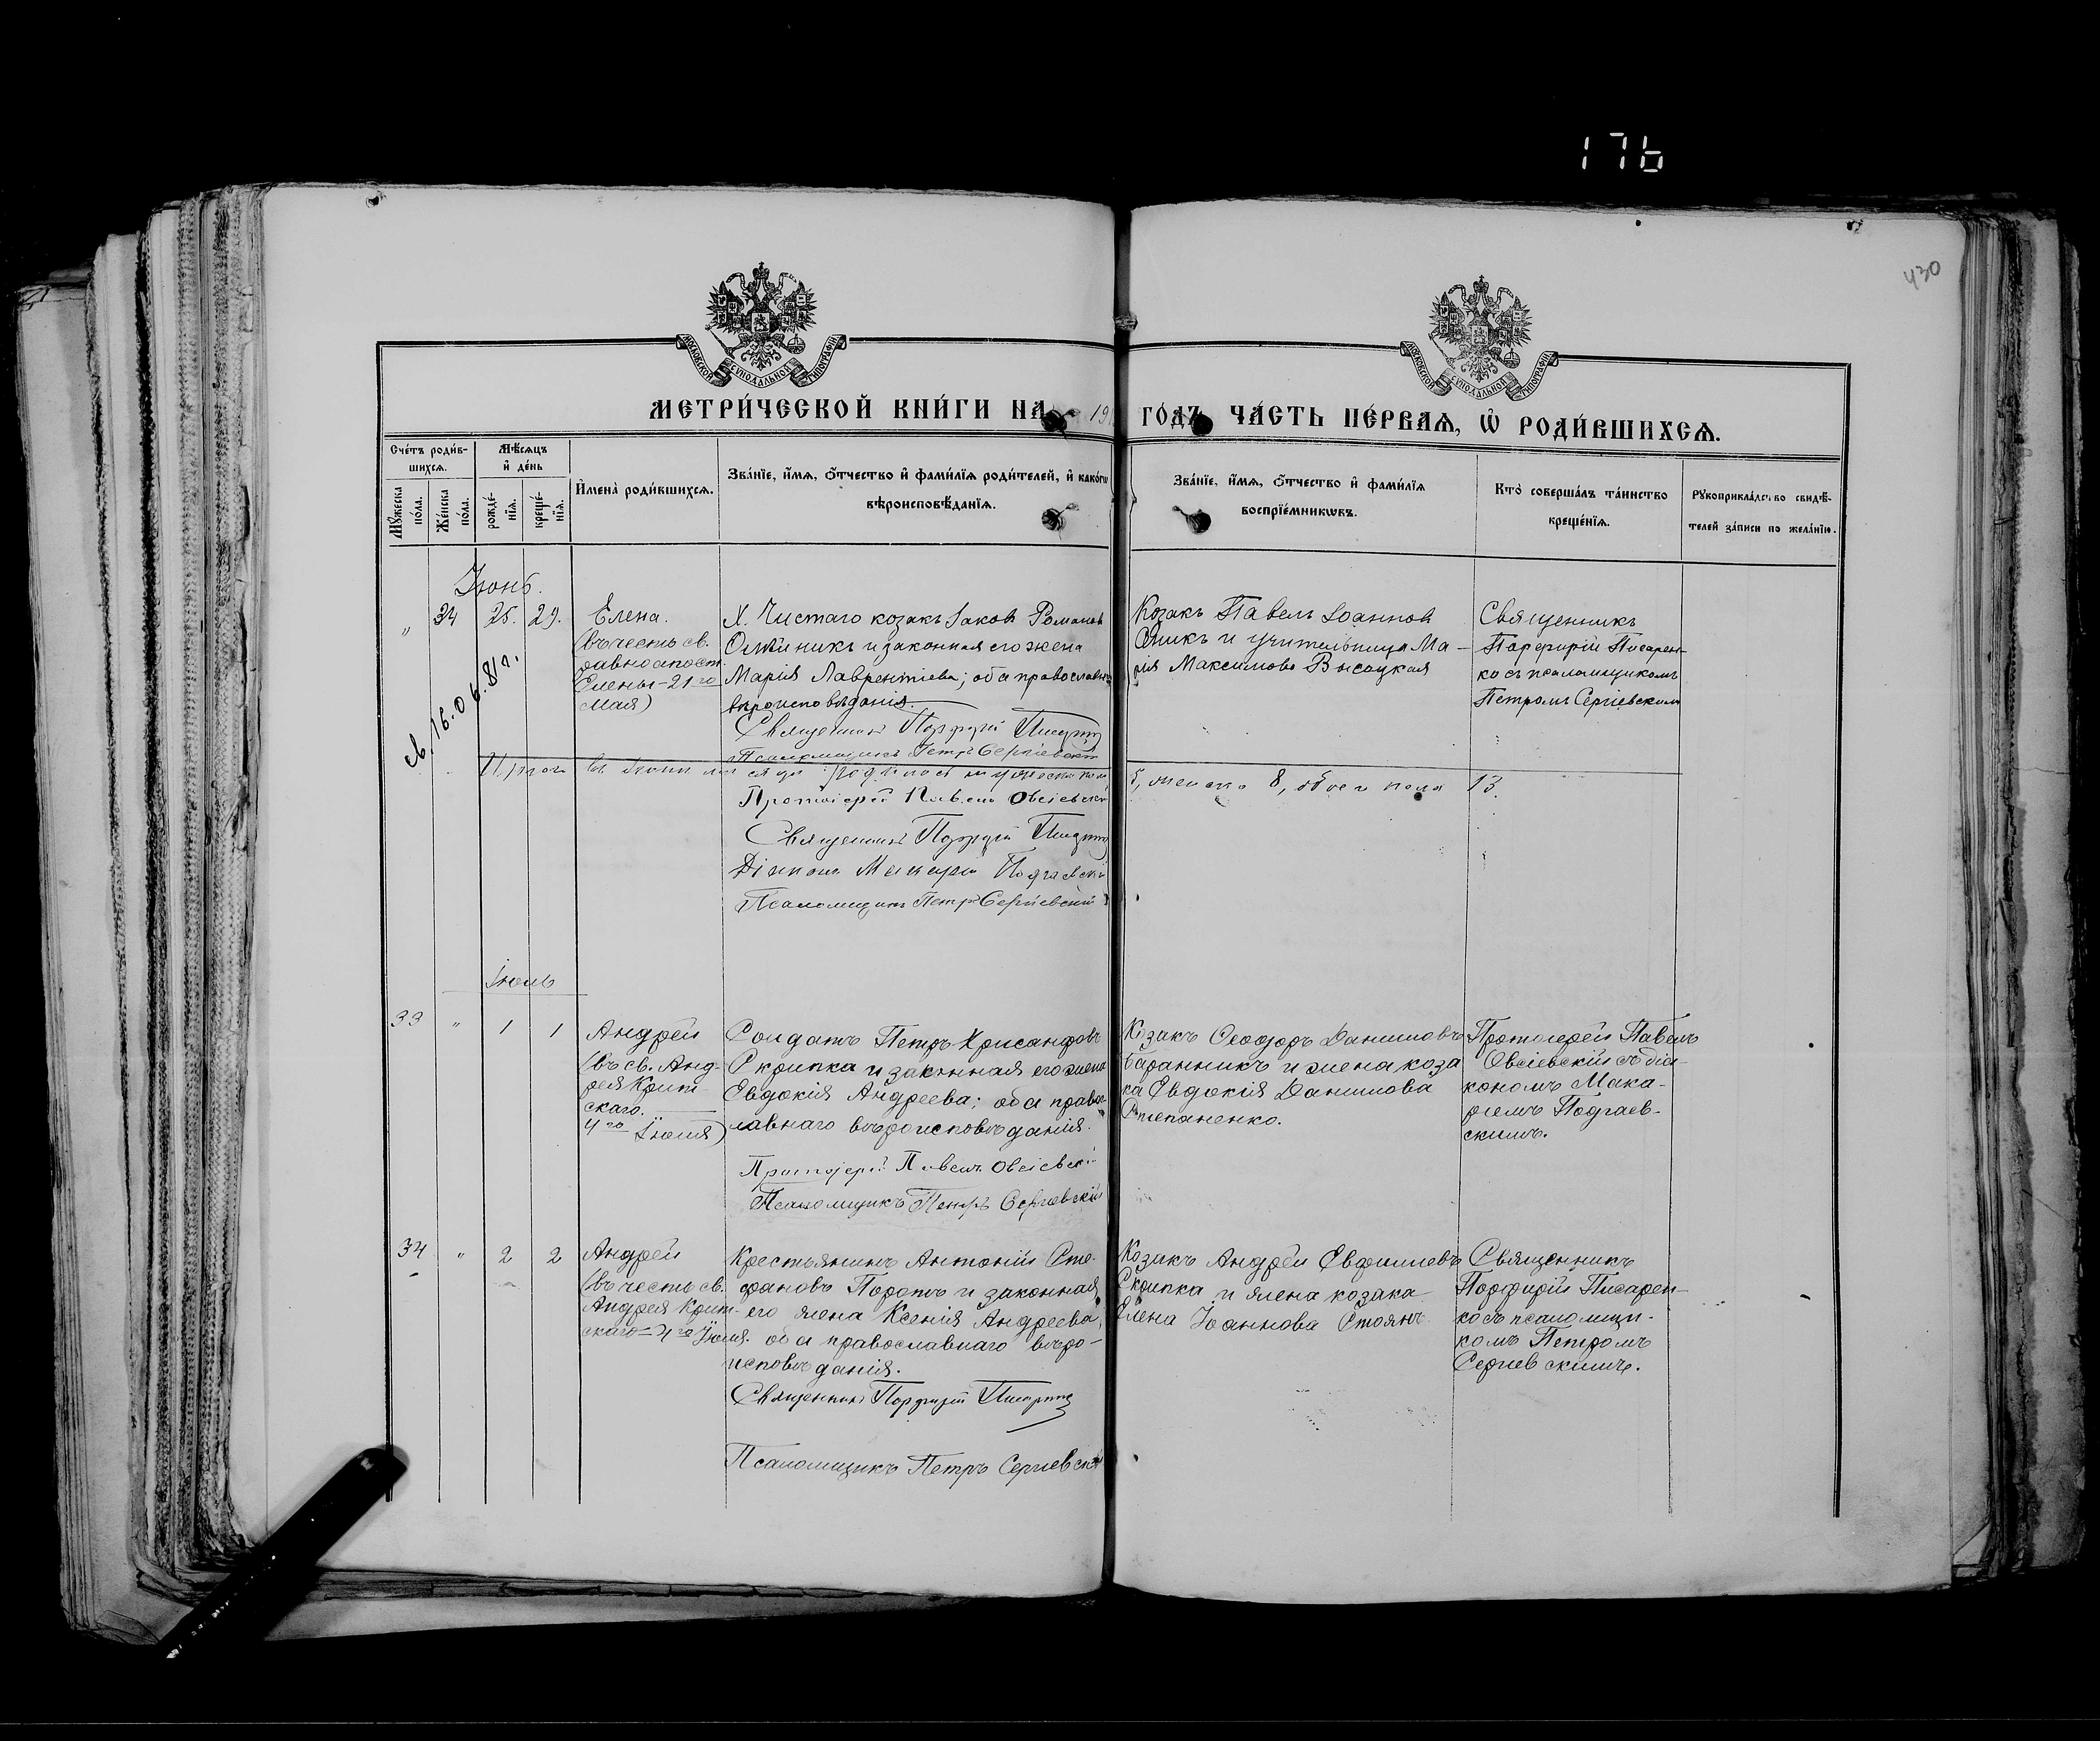 176
430
МОСКОВСКОЙ СѴНОДАЛЬНОЙ ТИПОГРАФІИ
МОСКОВСКОЙ СѴНОДАЛЬНОЙ ТИПОГРАФІИ
МЕТРИ́ЧЕСКОЙ КНИ́ГИ НА 19 ГО́ДЪ ЧА́СТЬ ПЕ́РВАѦ, Ѡ҆ РОДИ́ВШИХСѦ.
Сче́тъ роди́в-
шихсѧ.
Мѣ́сѧцъ
и҆ де́нь
Мꙋ́жеска
по́ла.
Же́нска
по́ла.
рожде́-
нїѧ.
креще́-
нїѧ.
И҆мена̀ роди́вшихсѧ.
Зва́нїе, и҆́мѧ, ѻ҆́тчество и҆ фами́лїѧ роди́телей, и҆ како́гѡ
вѣроисповѣ́данїѧ.
Зва́нїе, и҆́мѧ, ѻ҆́тчество и҆ фами́лїѧ
воспрїе́мникѡвъ.
Кто̀ соверша́лъ та́инство
креще́нїѧ.
Рꙋкоприкла́дство свидѣ́-
телей за́писи по жела́нїю.
Іюнь.
" 34 25. 29.
св. 16.06.81г.
Елена.
(въ честь св.
равноапост.
Елены - 21го
Мая)
Х. Чистаго козакъ Іаковъ Романовъ
Олейникъ и законная его жена
Марія Лаврентіева; оба православн.
вѣроисповѣданія.
Священникъ Порфирій
Псаломщикъ Петръ Сергіевскій
Козакъ Павелъ Іоанновъ
и учительница Ма-
рія Максимова Высоцкая
Священникъ
Порфирій Писарен-
ко съ псаломщикомъ
Петромъ Сергіевскимъ
Итого въ Іюнѣ мѣсяцѣ родилось мужеска пола
5, женска 8, обоего пола 13.
Протоіерей Павелъ Овсіевскій
Священникъ Порфирій
Діаконъ Макарій Подгаевскій
Псаломщикъ Петръ Сергіевскій
Іюль
33 " 1 1
Андрей
(въ св. Анд-
рея Крит-
скаго.
4го Іюля)
Солдатъ Петръ Хрисанфовъ
Скрипка и законная его жена
Евдокія Андреева; оба правос-
лавнаго вѣроисповѣданія.
Протоіерей Павелъ Овсіевскій
Псаломщикъ Петръ Сергіевскій
Козакъ Ѳеодоръ Даниловъ
Баранникъ и жена коза
ка Евдокія Данилова
Степаненко.
Протоіерей Павелъ
Овсіевскій съ діа-
кономъ Мака-
ріемъ Подгаев-
скимъ.
34 " 2 2
Андрей
(въ честь св.
Андрея Крит-
скаго - 4го Іюля.
Крестьянинъ Антоній Сте-
фановъ и законная
его жена Ксенія Андреева,
оба православнаго вѣро-
исповѣданія.
Священникъ Порфирій
Псаломщикъ Петръ Сергіевскій
Козакъ Андрей Евфиміевъ
Скрипка и жена козака
Елена Іоаннова Стоянъ
Священникъ
Порфирій Писарен-
ко съ псаломщи-
комъ Петромъ
Сергіевскимъ.